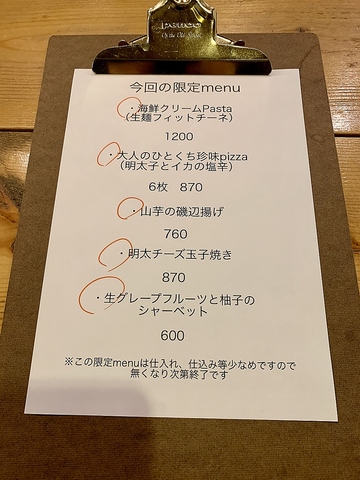 Of the Old School
今回の限定menu
・海鮮クリームPasta
(生麺フィットチーネ)
1200
・大人のひとくち珍味pizza
(明太子とイカの塩辛)
6枚 870
・山芋の磯辺揚げ
760
・明太チーズ玉子焼き
870
・生グレープフルーツと柚子の
シャーベット
600
※この限定menuは仕入れ、仕込み等少なめですので
無くなり次第終了です